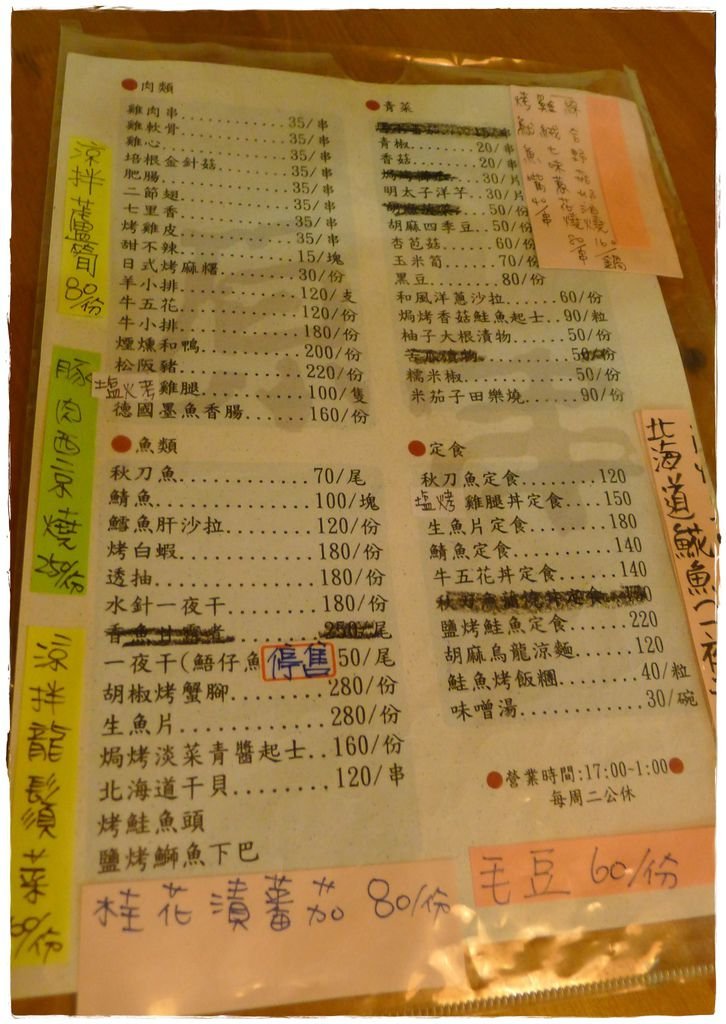 ●肉類
雞肉串............35/串
雞軟骨............35/串
雞心..............35/串
培根金針菇........35/串
肥腸..............35/串
二節翅............35/串
七里香............35/串
烤雞皮............35/串
甜不辣............15/塊
日式烤麻糬........30/份
羊小排............120/支
牛五花............120/份
牛小排............180/份
煙燻和鴨..........200/份
松阪豬............220/份
塩火考雞腿........100/隻
德國墨魚香腸......160/份
●魚類
秋刀魚............70/尾
鯖魚..............100/塊
鱈魚肝沙拉........120/份
烤白蝦............180/份
透抽..............180/份
水針一夜干........180/份
香魚甘露煮 250/尾
一夜干(鯃仔魚 停售 50/尾
胡椒烤蟹腳........280/份
生魚片............280/份
焗烤淡菜青醬起士..160/份
北海道干貝........120/串
烤鮭魚頭
鹽烤鰤魚下巴
●青菜
青椒..............20/串
香菇..............20/串
30/片
明太子洋芋..30/片
50/份
胡麻四季豆..50/份
杏苞菇......60/份
玉米筍......70/份
黑豆........80/份
和風洋蔥沙拉......60/份
焗烤香菇鮭魚起士..90/粒
柚子大根漬物......50/份
苦瓜漬物 50/份
糯米椒............50/份
米茄子田樂燒......90/份
●定食
秋刀魚定食........120
塩烤雞腿丼定食....150
生魚片定食........180
鯖魚定食..........140
牛五花丼定食......140
鹽烤鮭魚定食......220
胡麻烏龍涼麵......120
鮭魚烤飯糰........40/粒
味噌湯............30/碗
●營業時間:17:00~1:00●
每周二公休
涼拌蘆筍 80/份
豚肉西京燒 250/份
涼拌龍鬚菜
桂花漬蕃茄 80/份
毛豆 60/份
北海道